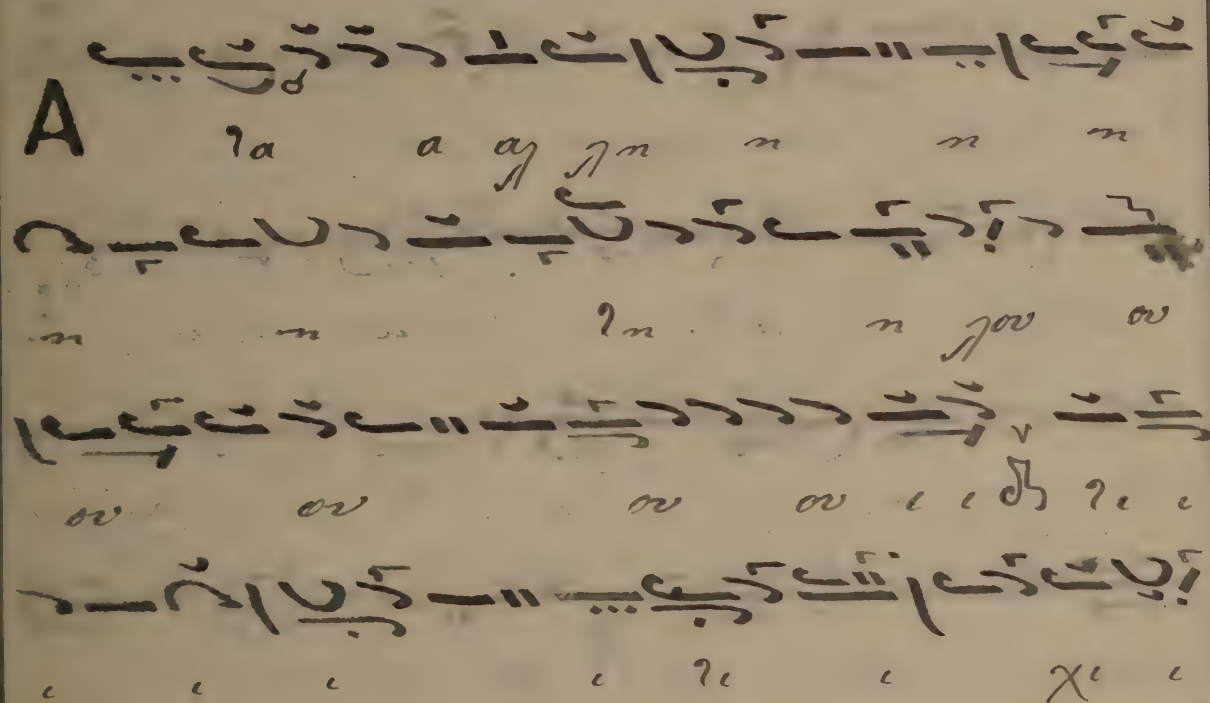 Α γα α αλ λη η η η
η η γη η λου ου
ου ου ου ου ι ι γι ι
ι ι ι ι γι ι χι ι